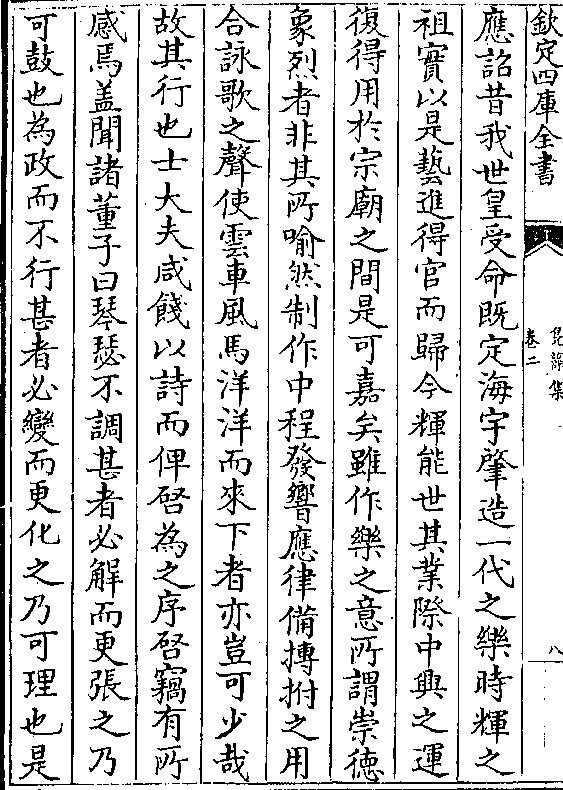 欽定四庫全書
卷二
八
應詔昔我世皇受命既定海宇肇造一代之樂時輝之
祖實以是藝進得官而歸今輝能世其業際中興之運
復得用於宗廟之間是可嘉矣雖作樂之意所謂崇徳
象烈者非其所喻然制作中程發響應律備搏拊之用
合詠歌之聲使雲車風馬洋洋而來下者亦豈可少哉
故其行也士大夫咸餞以詩而俾啓為之序啓竊有所
感焉盖聞諸董子曰琴瑟不調甚者必解而更張之乃
可鼓也為政而不行甚者必變而更化之乃可理也是